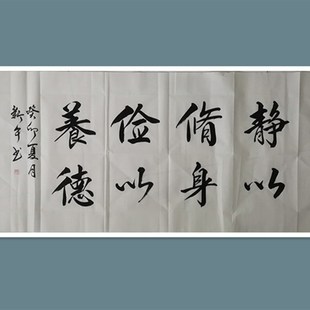 静以
脩身
俭以
養德
癸卯夏月
新年书